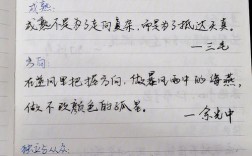 成熟:
成熟不是为了走向复杂,而是为了抵达天真。
—三毛
方向
在逆风里把握方向,做暴风雨中的海燕,
做不改颜色的孤星。
—余光中
独立与从众: